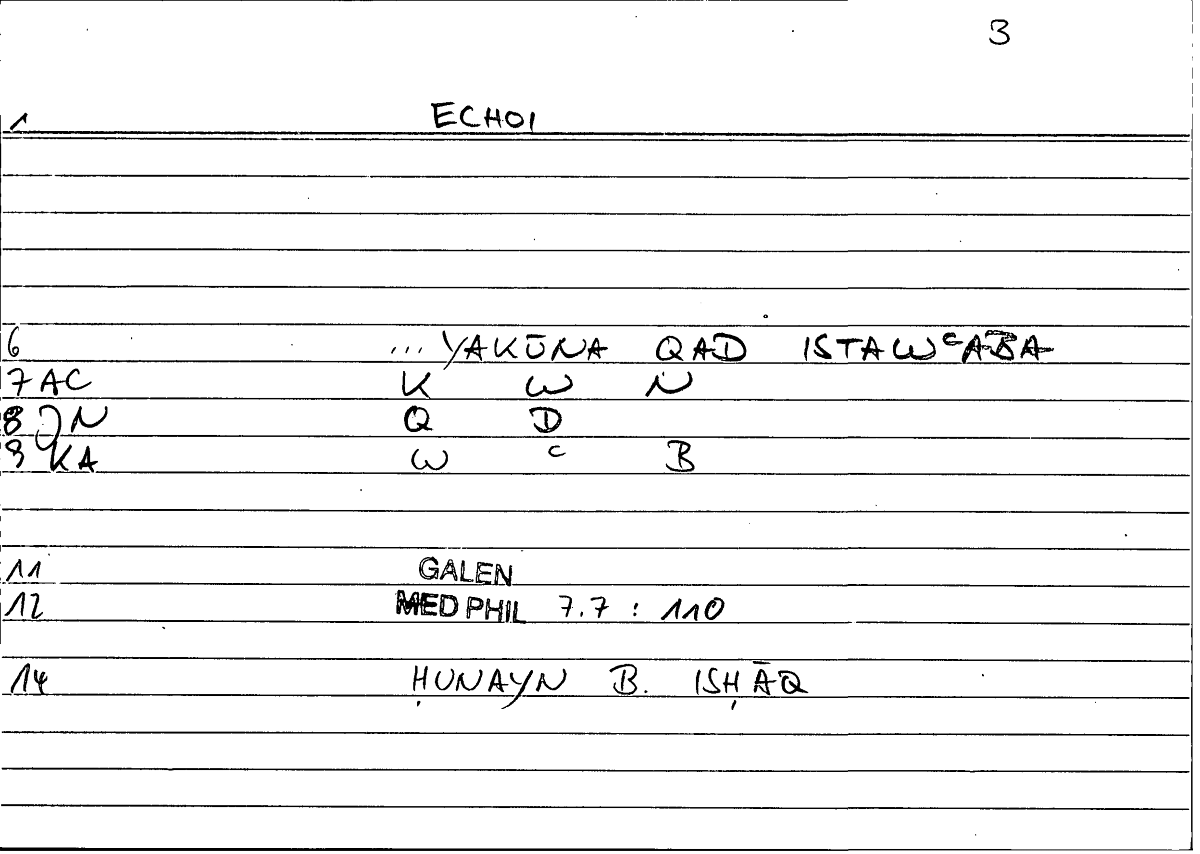 3
1 ECHOI
6 ... YAKŪNA QAD ISTAWᶜABA
7 AC K W N
8 QN Q D
9 KA W ᶜ B
11 GALEN
12 MED PHIL 7.7 : 110
14 ḤUNAYN B. ISḤĀQ